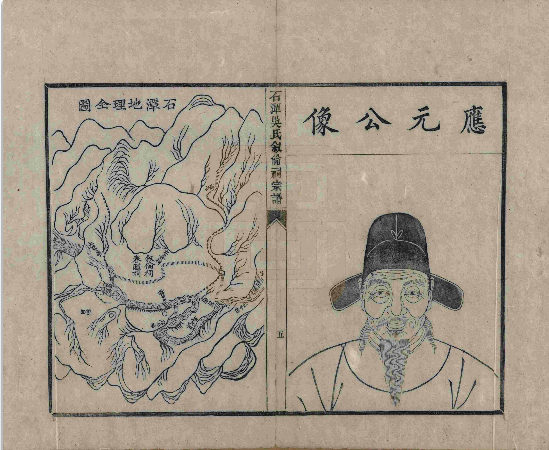 應元公像
石潭吳氏叙倫祠宗譜
五
石潭地理全圖
叙倫祠